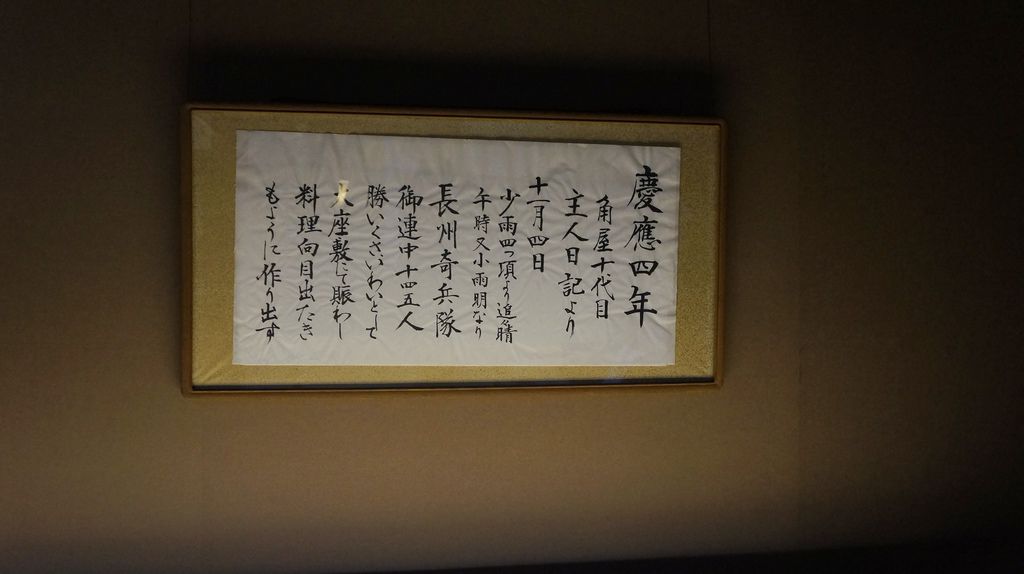 慶應四年
角屋十代目
主人日記より
十一月四日
少雨四つ頃より追々晴
午時又小雨明なり
長州奇兵隊
御連中十四五人
勝いくさいわいとして
大座敷にて賑わし
料理向目出たき
もように作り出す